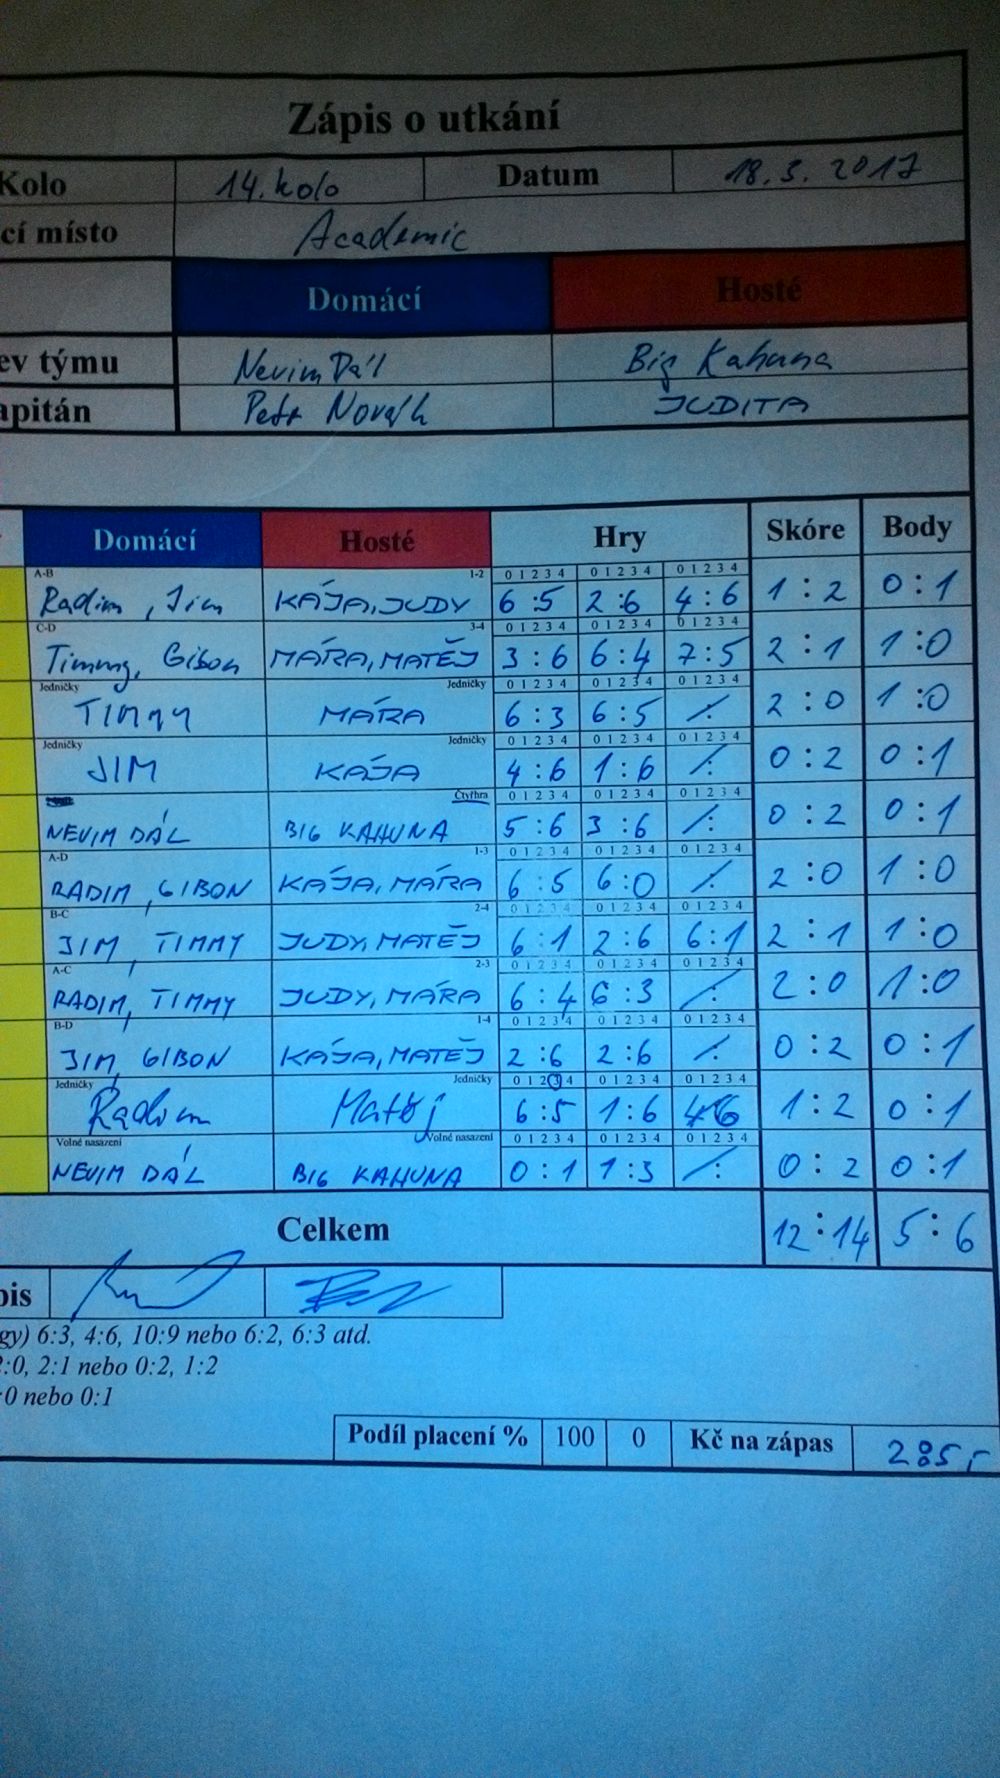 Zápis o utkání
Kolo 14. kolo Datum 18.3.2017
cí místo Academic
Domácí Hosté
ev týmu Nevim Dál Big Kahuna
apitán Petr Novák JUDITA
Domácí Hosté Hry Skóre Body
A-B 1-2 0 1 2 3 4 0 1 2 3 4 0 1 2 3 4
Radim, Jim KÁJA, JUDY 6:5 2:6 4:6 1:2 0:1
C-D 3-4 0 1 2 3 4 0 1 2 3 4 0 1 2 3 4
Timmy, Gibon MÁRA, MATĚJ 3:6 6:4 7:5 2:1 1:0
Jedničky Jedničky 0 1 2 3 4 0 1 2 3 4 0 1 2 3 4
TIMMY MÁRA 6:3 6:5 /: 2:0 1:0
Jedničky Jedničky 0 1 2 3 4 0 1 2 3 4 0 1 2 3 4
JIM KÁJA 4:6 1:6 /: 0:2 0:1
Čtyřhra 0 1 2 3 4 0 1 2 3 4 0 1 2 3 4
NEVIM DÁL BIG KAHUNA 5:6 3:6 /: 0:2 0:1
A-D 1-3 0 1 2 3 4 0 1 2 3 4 0 1 2 3 4
RADIM, GIBON KÁJA, MÁRA 6:5 6:0 /: 2:0 1:0
B-C 2-4 0 1 2 3 4 0 1 2 3 4 0 1 2 3 4
JIM, TIMMY JUDY, MATĚJ 6:1 2:6 6:1 2:1 1:0
A-C 2-3 0 1 2 3 4 0 1 2 3 4 0 1 2 3 4
RADIM, TIMMY JUDY, MÁRA 6:4 6:3 /: 2:0 1:0
B-D 1-4 0 1 2 3 4 0 1 2 3 4 0 1 2 3 4
JIM, GIBON KÁJA, MATĚJ 2:6 2:6 /: 0:2 0:1
Jedničky Jedničky 0 1 2 3 4 0 1 2 3 4 0 1 2 3 4
Radim Matěj 6:5 1:6 46 1:2 0:1
Volné nasazení Volné nasazení 0 1 2 3 4 0 1 2 3 4 0 1 2 3 4
NEVIM DÁL BIG KAHUNA 0:1 1:3 /: 0:2 0:1
Celkem 12:14 5:6
pis
gy) 6:3, 4:6, 10:9 nebo 6:2, 6:3 atd.
2:0, 2:1 nebo 0:2, 1:2
:0 nebo 0:1
Podíl placení % 100 0 Kč na zápas